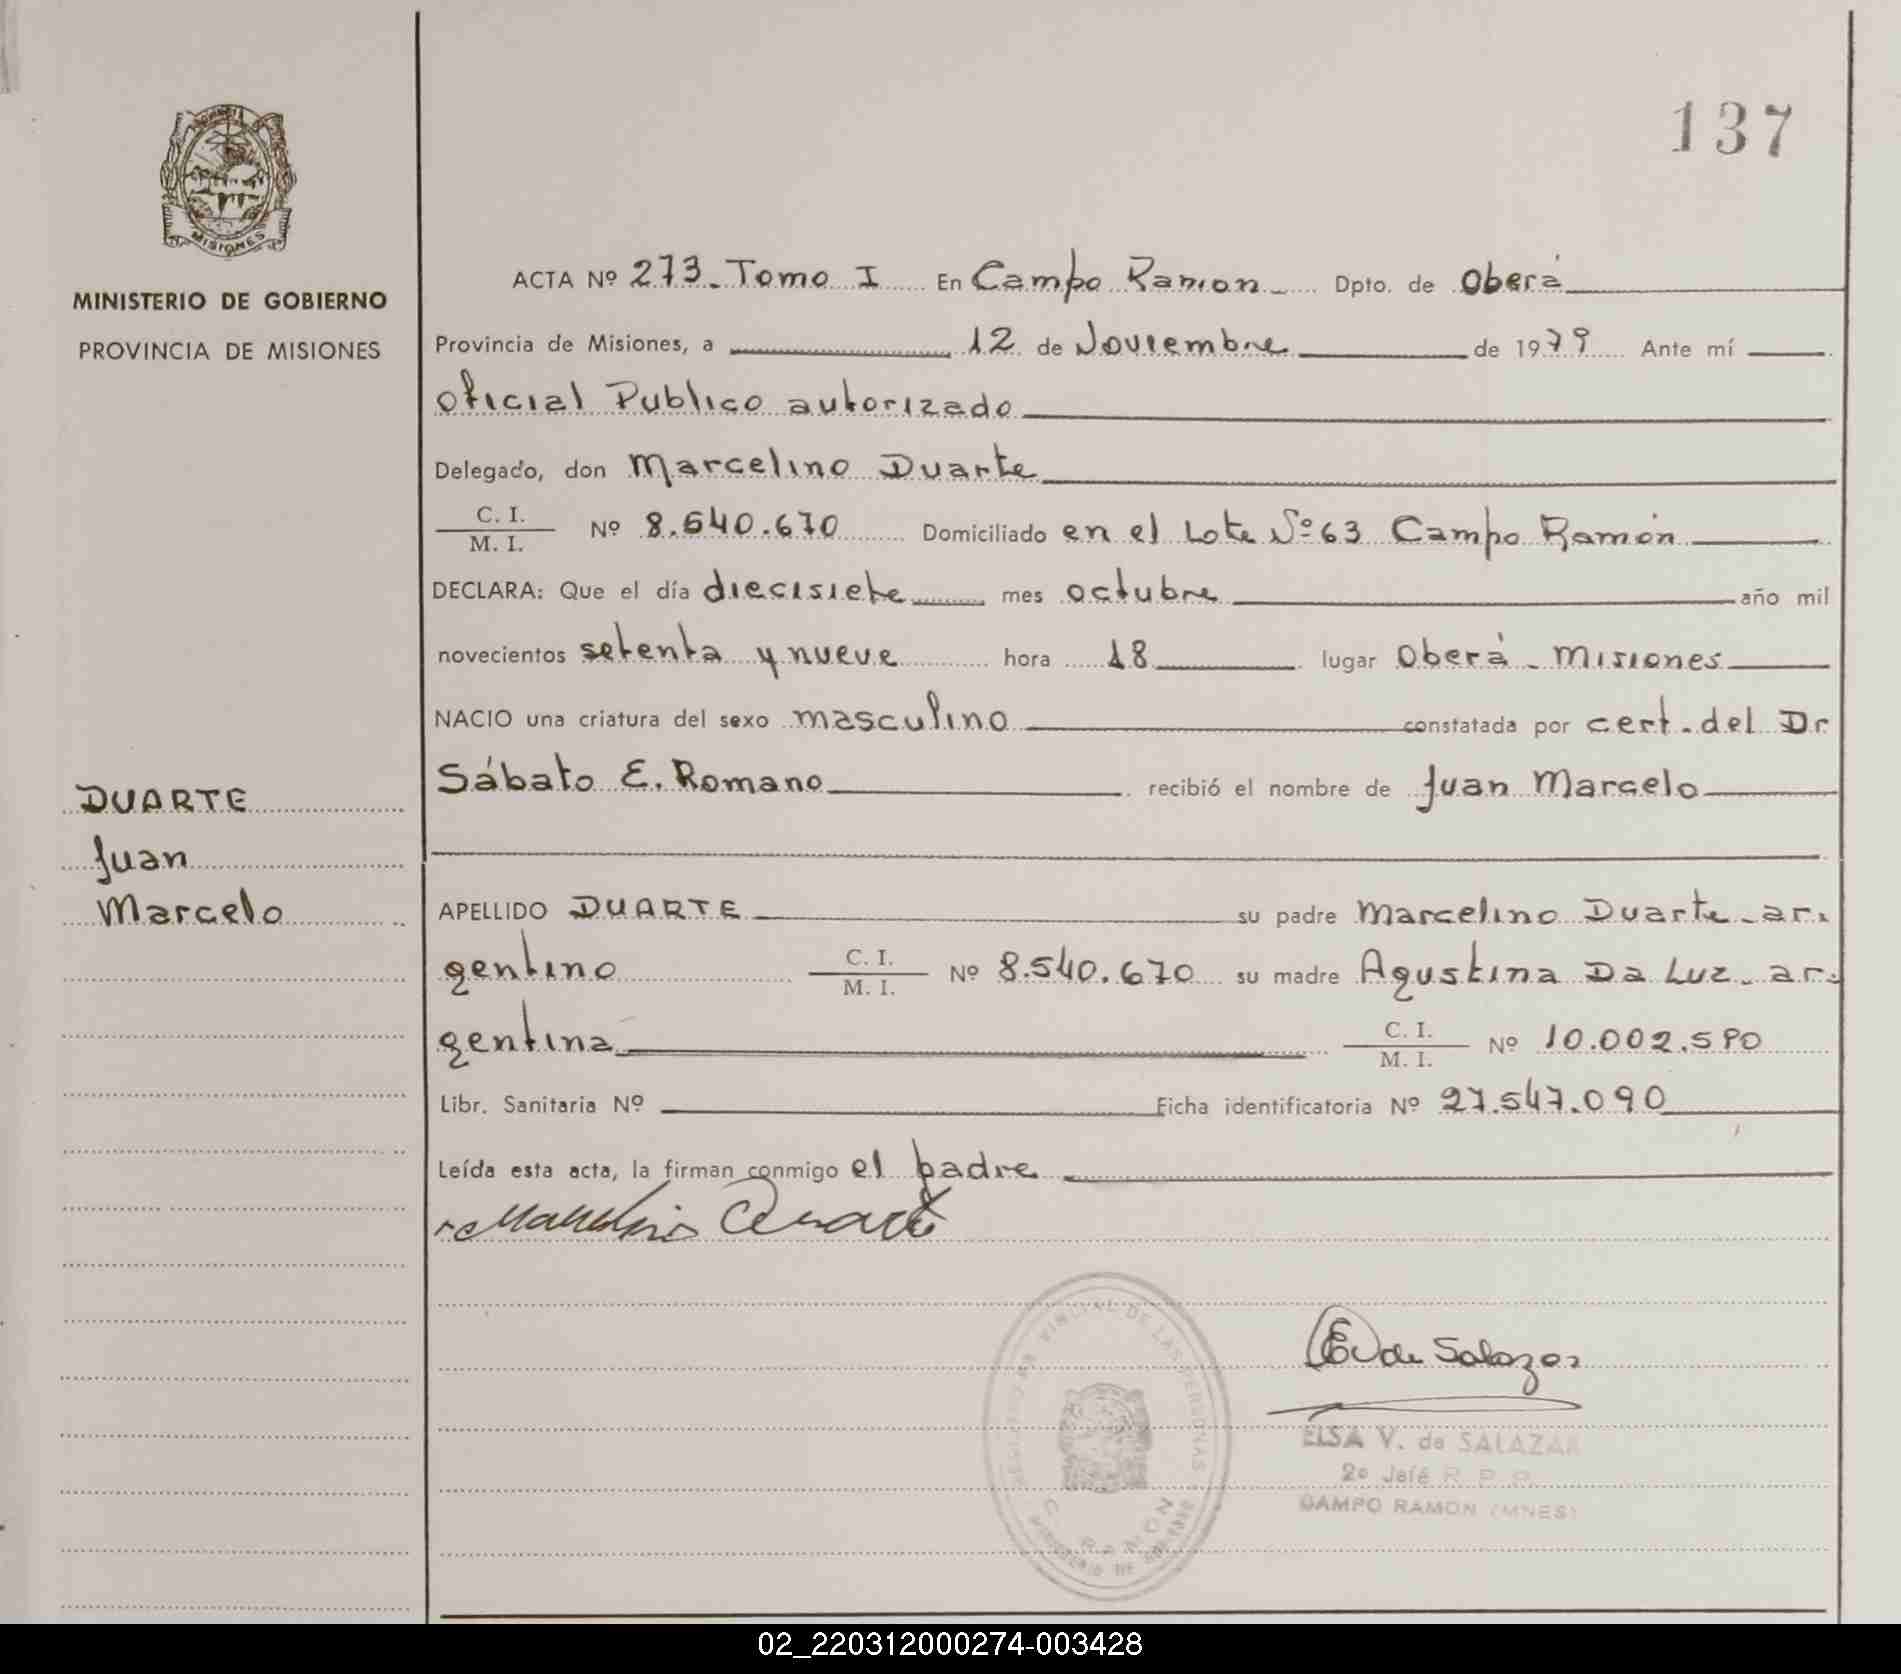 137
MISIONES
MINISTERIO DE GOBIERNO
PROVINCIA DE MISIONES
ACTA Nº 273. Tomo I En Campo Ramon Dpto. de Oberá
Provincia de Misiones, a 12 de Noviembre de 1979 Ante mí
Oficial Publico autorizado
Delegado, don Marcelino Duarte
C. I.
M. I. Nº 8.540.670 Domiciliado en el Lote Nº 63 Campo Ramón
DECLARA: Que el día diecisiete mes octubre año mil
novecientos setenta y nueve hora 18 lugar Oberá - Misiones
NACIO una criatura del sexo masculino constatada por cert. del Dr
Sábato E. Romano recibió el nombre de Juan Marcelo
DUARTE
Juan
Marcelo
APELLIDO DUARTE su padre Marcelino Duarte - ar-
gentino C. I.
M. I. Nº 8.540.670 su madre Agustina Da Luz - ar-
gentina C. I.
M. I. Nº 10.002.590
Libr. Sanitaria Nº Ficha identificatoria Nº 27.547.090
Leída esta acta, la firman conmigo el padre
Marcelino Duarte
E V de Salazar
ELSA V. de SALAZAR
2º Jefe R. P. P.
CAMPO RAMON (MNES)
VINCIAL DE LAS PERSONAS
C. RAMON
MINISTERIO DE GOBIERNO
02_220312000274-003428